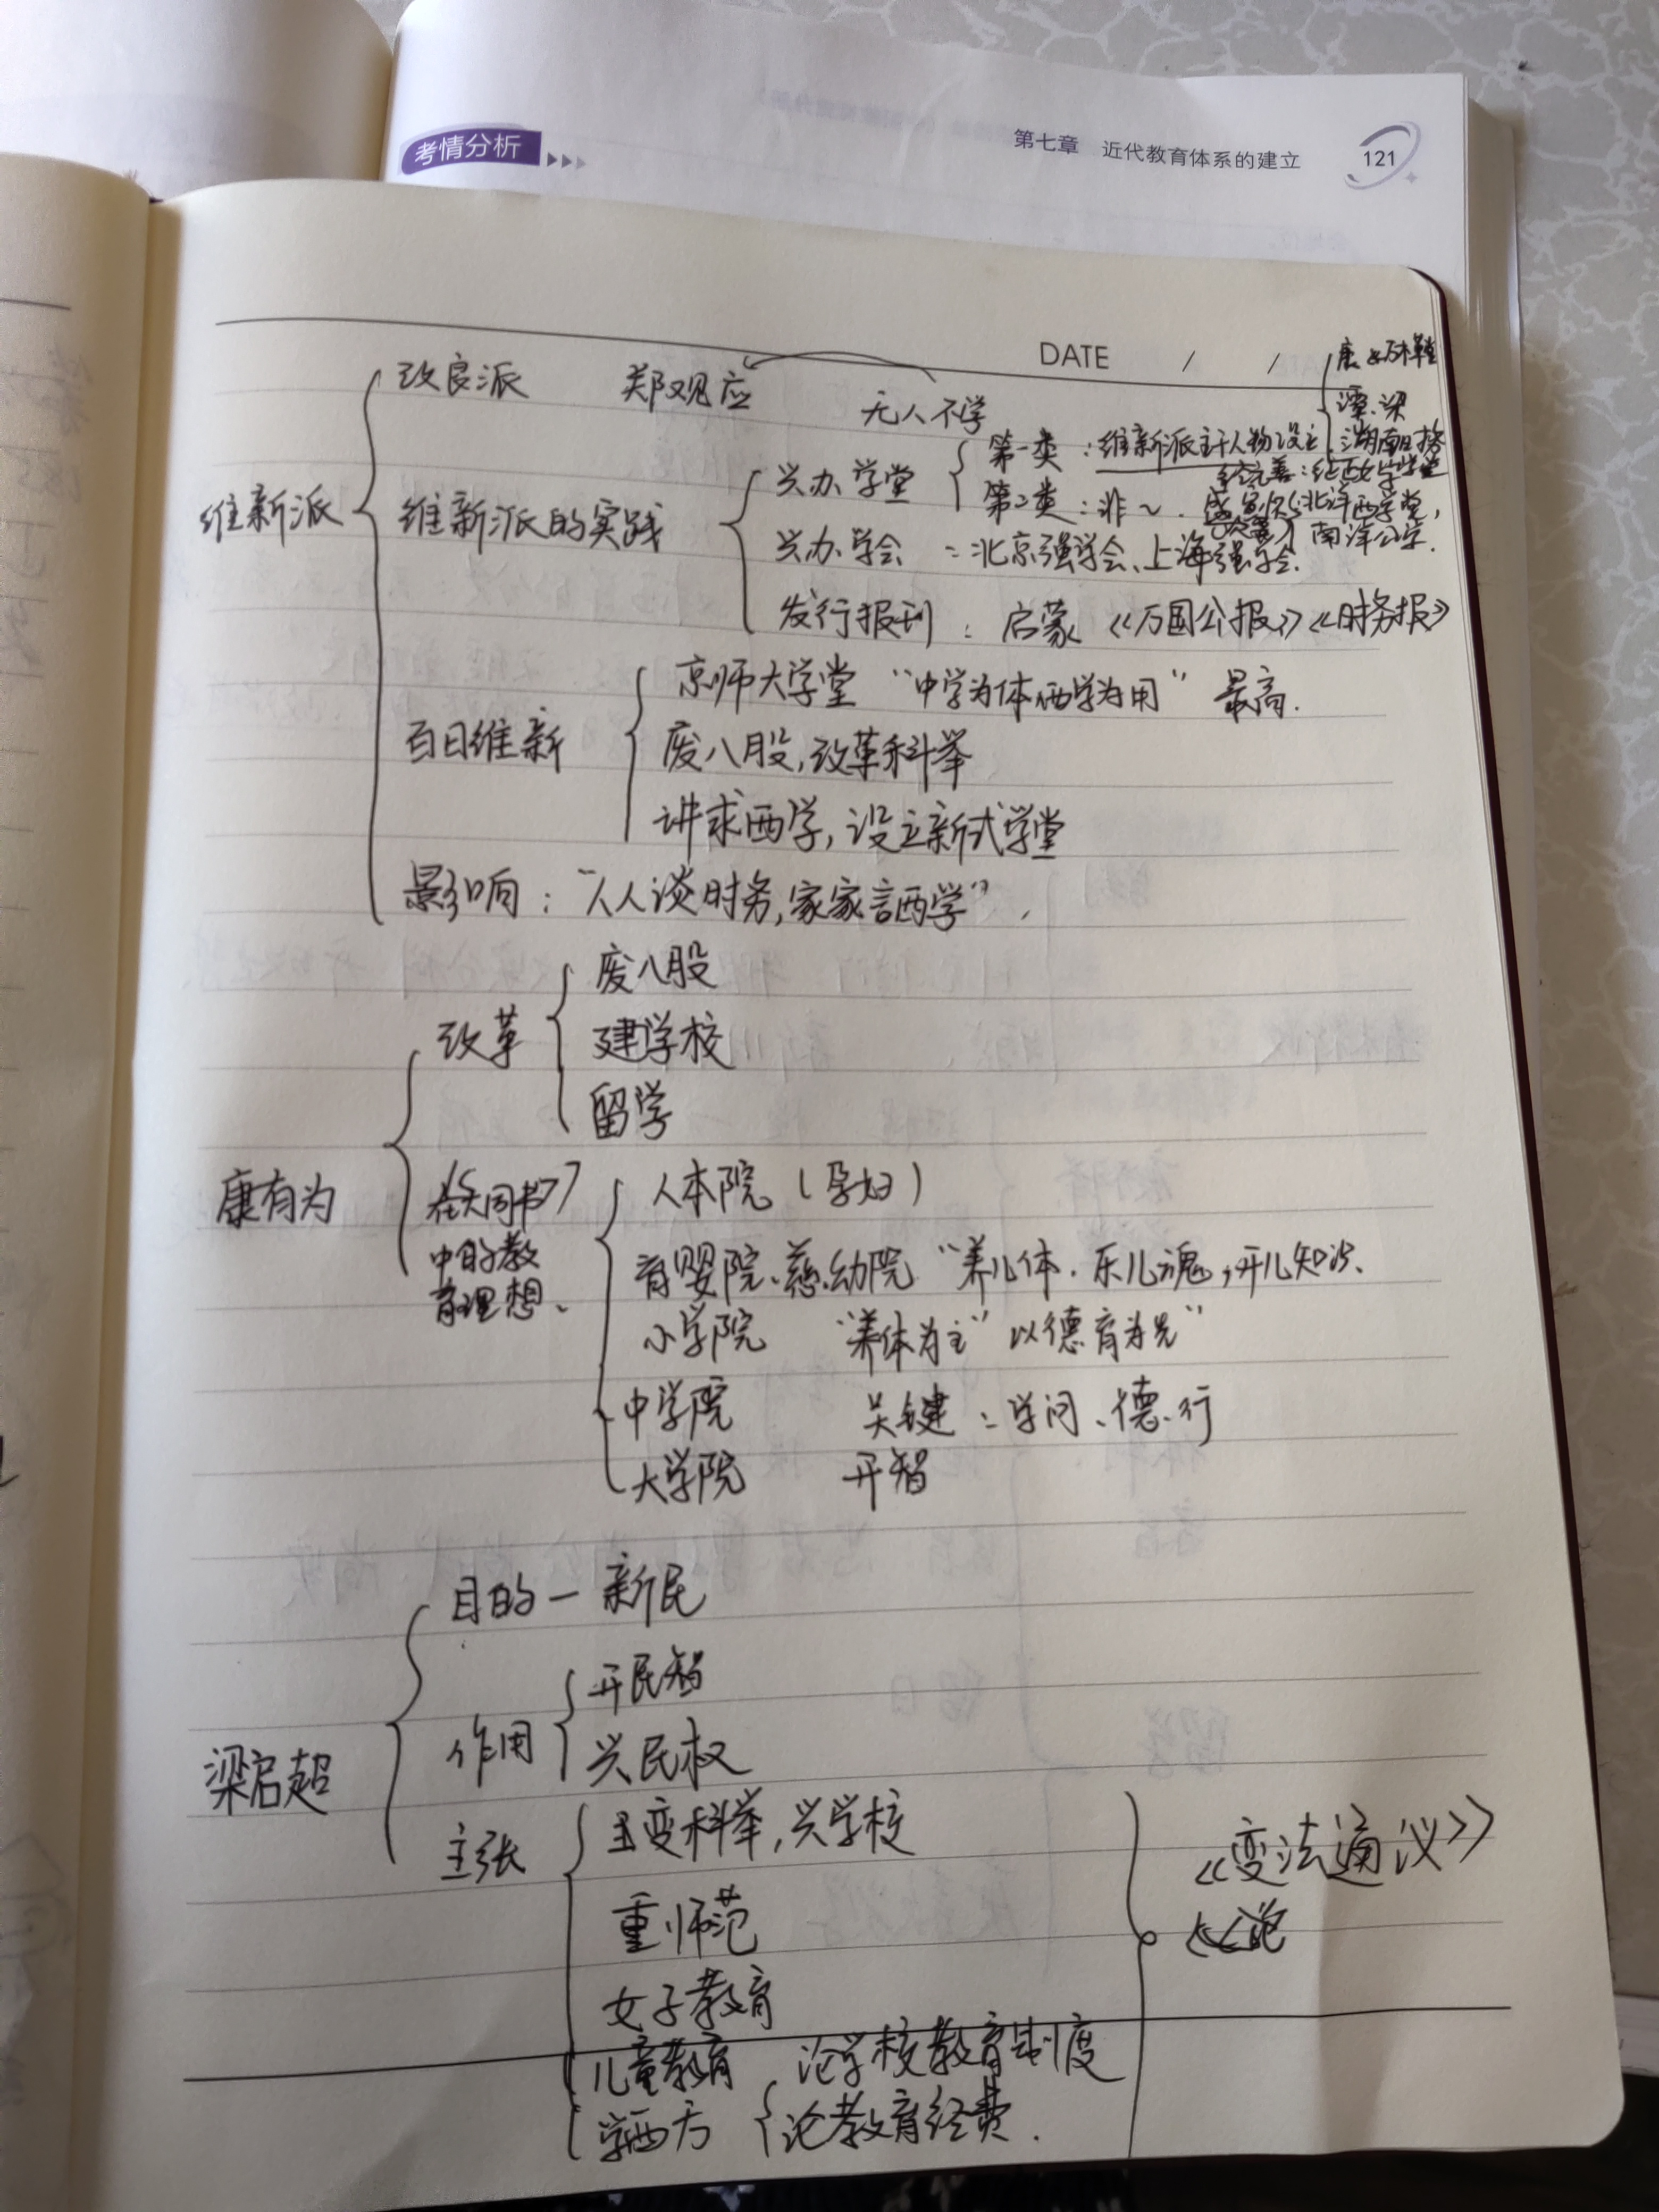 考情分析
第七章 近代教育体系的建立 121
DATE / /
康:万木草堂
改良派 郑观应
无人不学
谭、梁
第一类:维新派主干人物设立 湖南时务
兴办学堂
经元善:经正女学学堂
维新派 维新派的实践
第二类:非~.盛宣怀:北洋西学堂,
南洋公学.
兴办学会:北京强学会、上海强学会.
发行报刊:启蒙《万国公报》《时务报》
京师大学堂 “中学为体西学为用” 最高.
百日维新
废八股,改革科举
讲求西学,设立新式学堂
影响:“人人谈时务,家家言西学”.
废八股
改革
建学校
留学
康有为
在《大同书》
中的教
育理想、
人本院(孕妇)
育婴院、慈幼院 “养儿体.乐儿魂,开儿知识、
小学院 “养体为主” 以德育为先”
中学院 关键:学问、德、行
大学院 开智
目的—新民
开民智
作用
兴民权
梁启超
主张
变科举,兴学校
《变法通议》
重师范
女子教育
儿童教育 论学校教育制度
学西方 论教育经费.